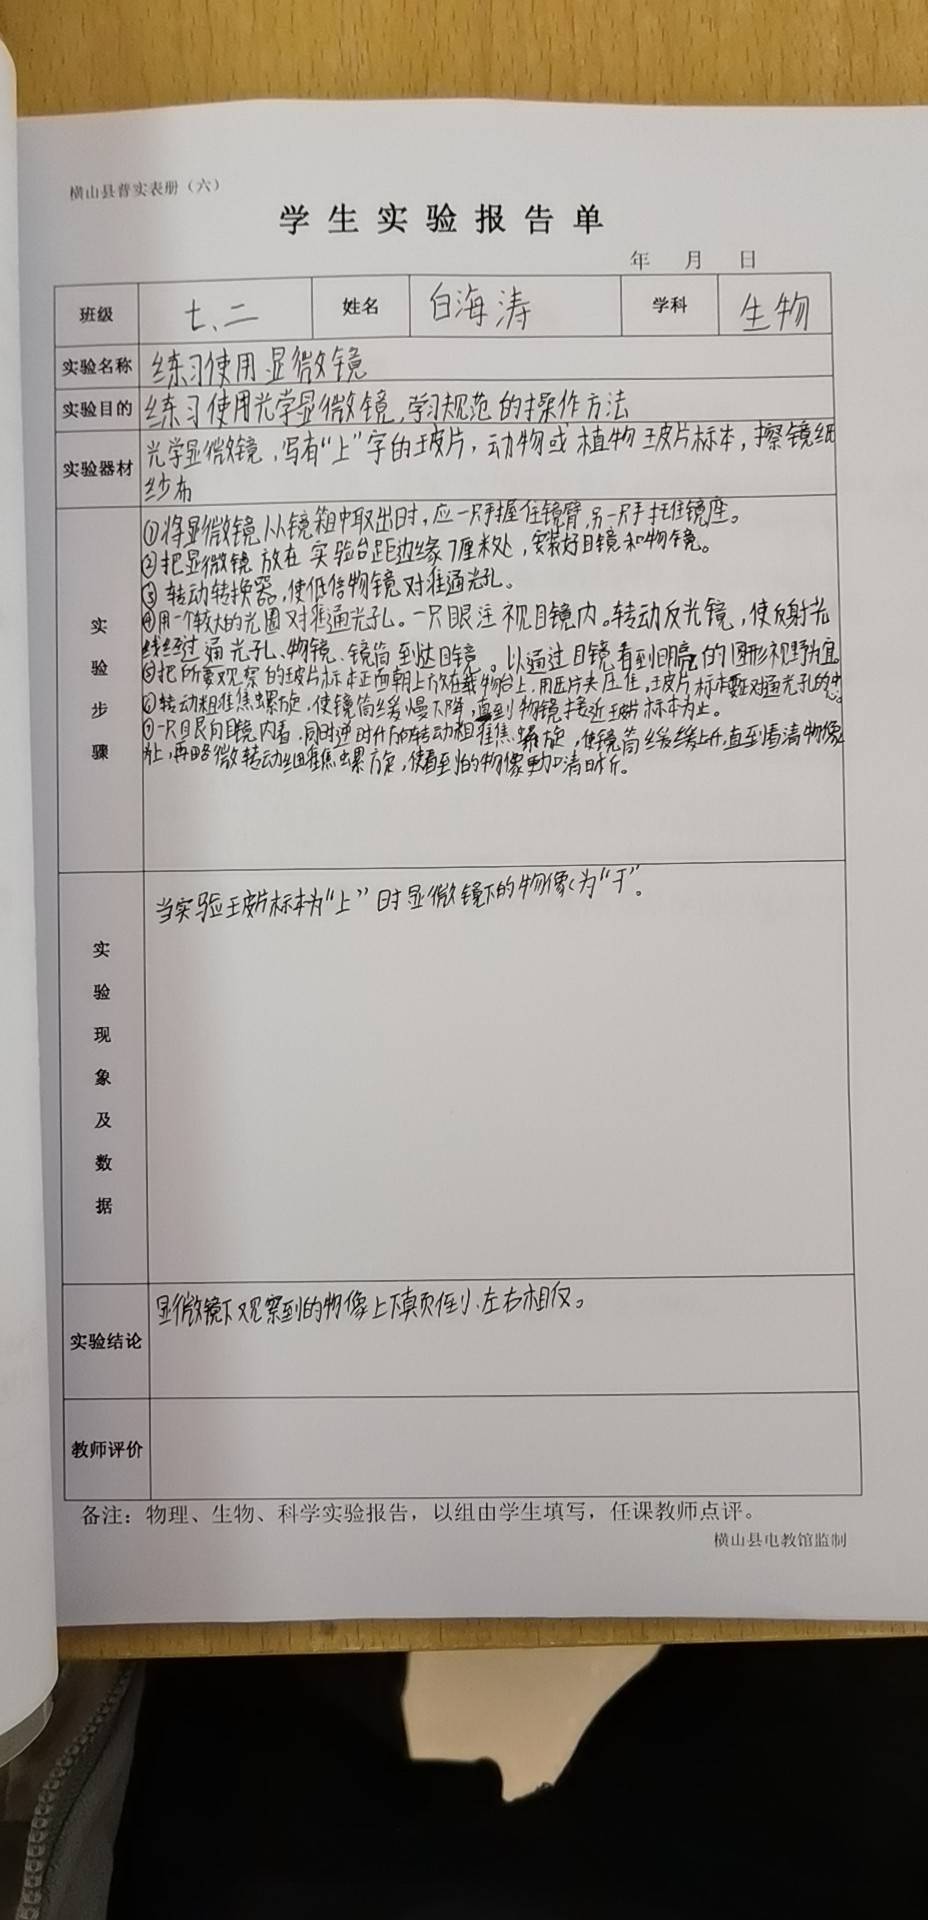 横山县普实表册（六）
学生实验报告单
年 月 日
班级 七、二 姓名 白海涛 学科 生物
实验名称 练习使用显微镜
实验目的 练习使用光学显微镜，学习规范的操作方法
实验器材 光学显微镜，写有“上”字的玻片，动物或植物玻片标本，擦镜纸
纱布
实验步骤
①将显微镜从镜箱中取出时，应一只手握住镜臂，另一只手托住镜座。
②把显微镜放在实验台距边缘7厘米处，安装好目镜和物镜。
③转动转换器，使低倍物镜对准通光孔。
④用一个较大的光圈对准通光孔。一只眼注视目镜内。转动反光镜，使反射光
线经过通光孔、物镜、镜筒到达目镜。以通过目镜看到明亮的圆形视野为宜
⑤把所要观察的玻片标本正面朝上放在载物台上，用压片夹压住，玻片标本要正对通光孔的中心
⑥转动粗准焦螺旋，使镜筒缓慢下降，直到物镜接近玻片标本为止。
⑦一只眼向目镜内看，同时逆时针方向转动粗准焦螺旋，使镜筒缓缓上升，直至看清物像
为止，再略微转动细准焦螺旋，使看到的物像更加清晰。
实验现象及数据
当实验玻片标本为“上”时显微镜下的物像为“丅”。
实验结论 显微镜下观察到的物像上下颠倒、左右相反。
教师评价
备注：物理、生物、科学实验报告，以组由学生填写，任课教师点评。
横山县电教馆监制